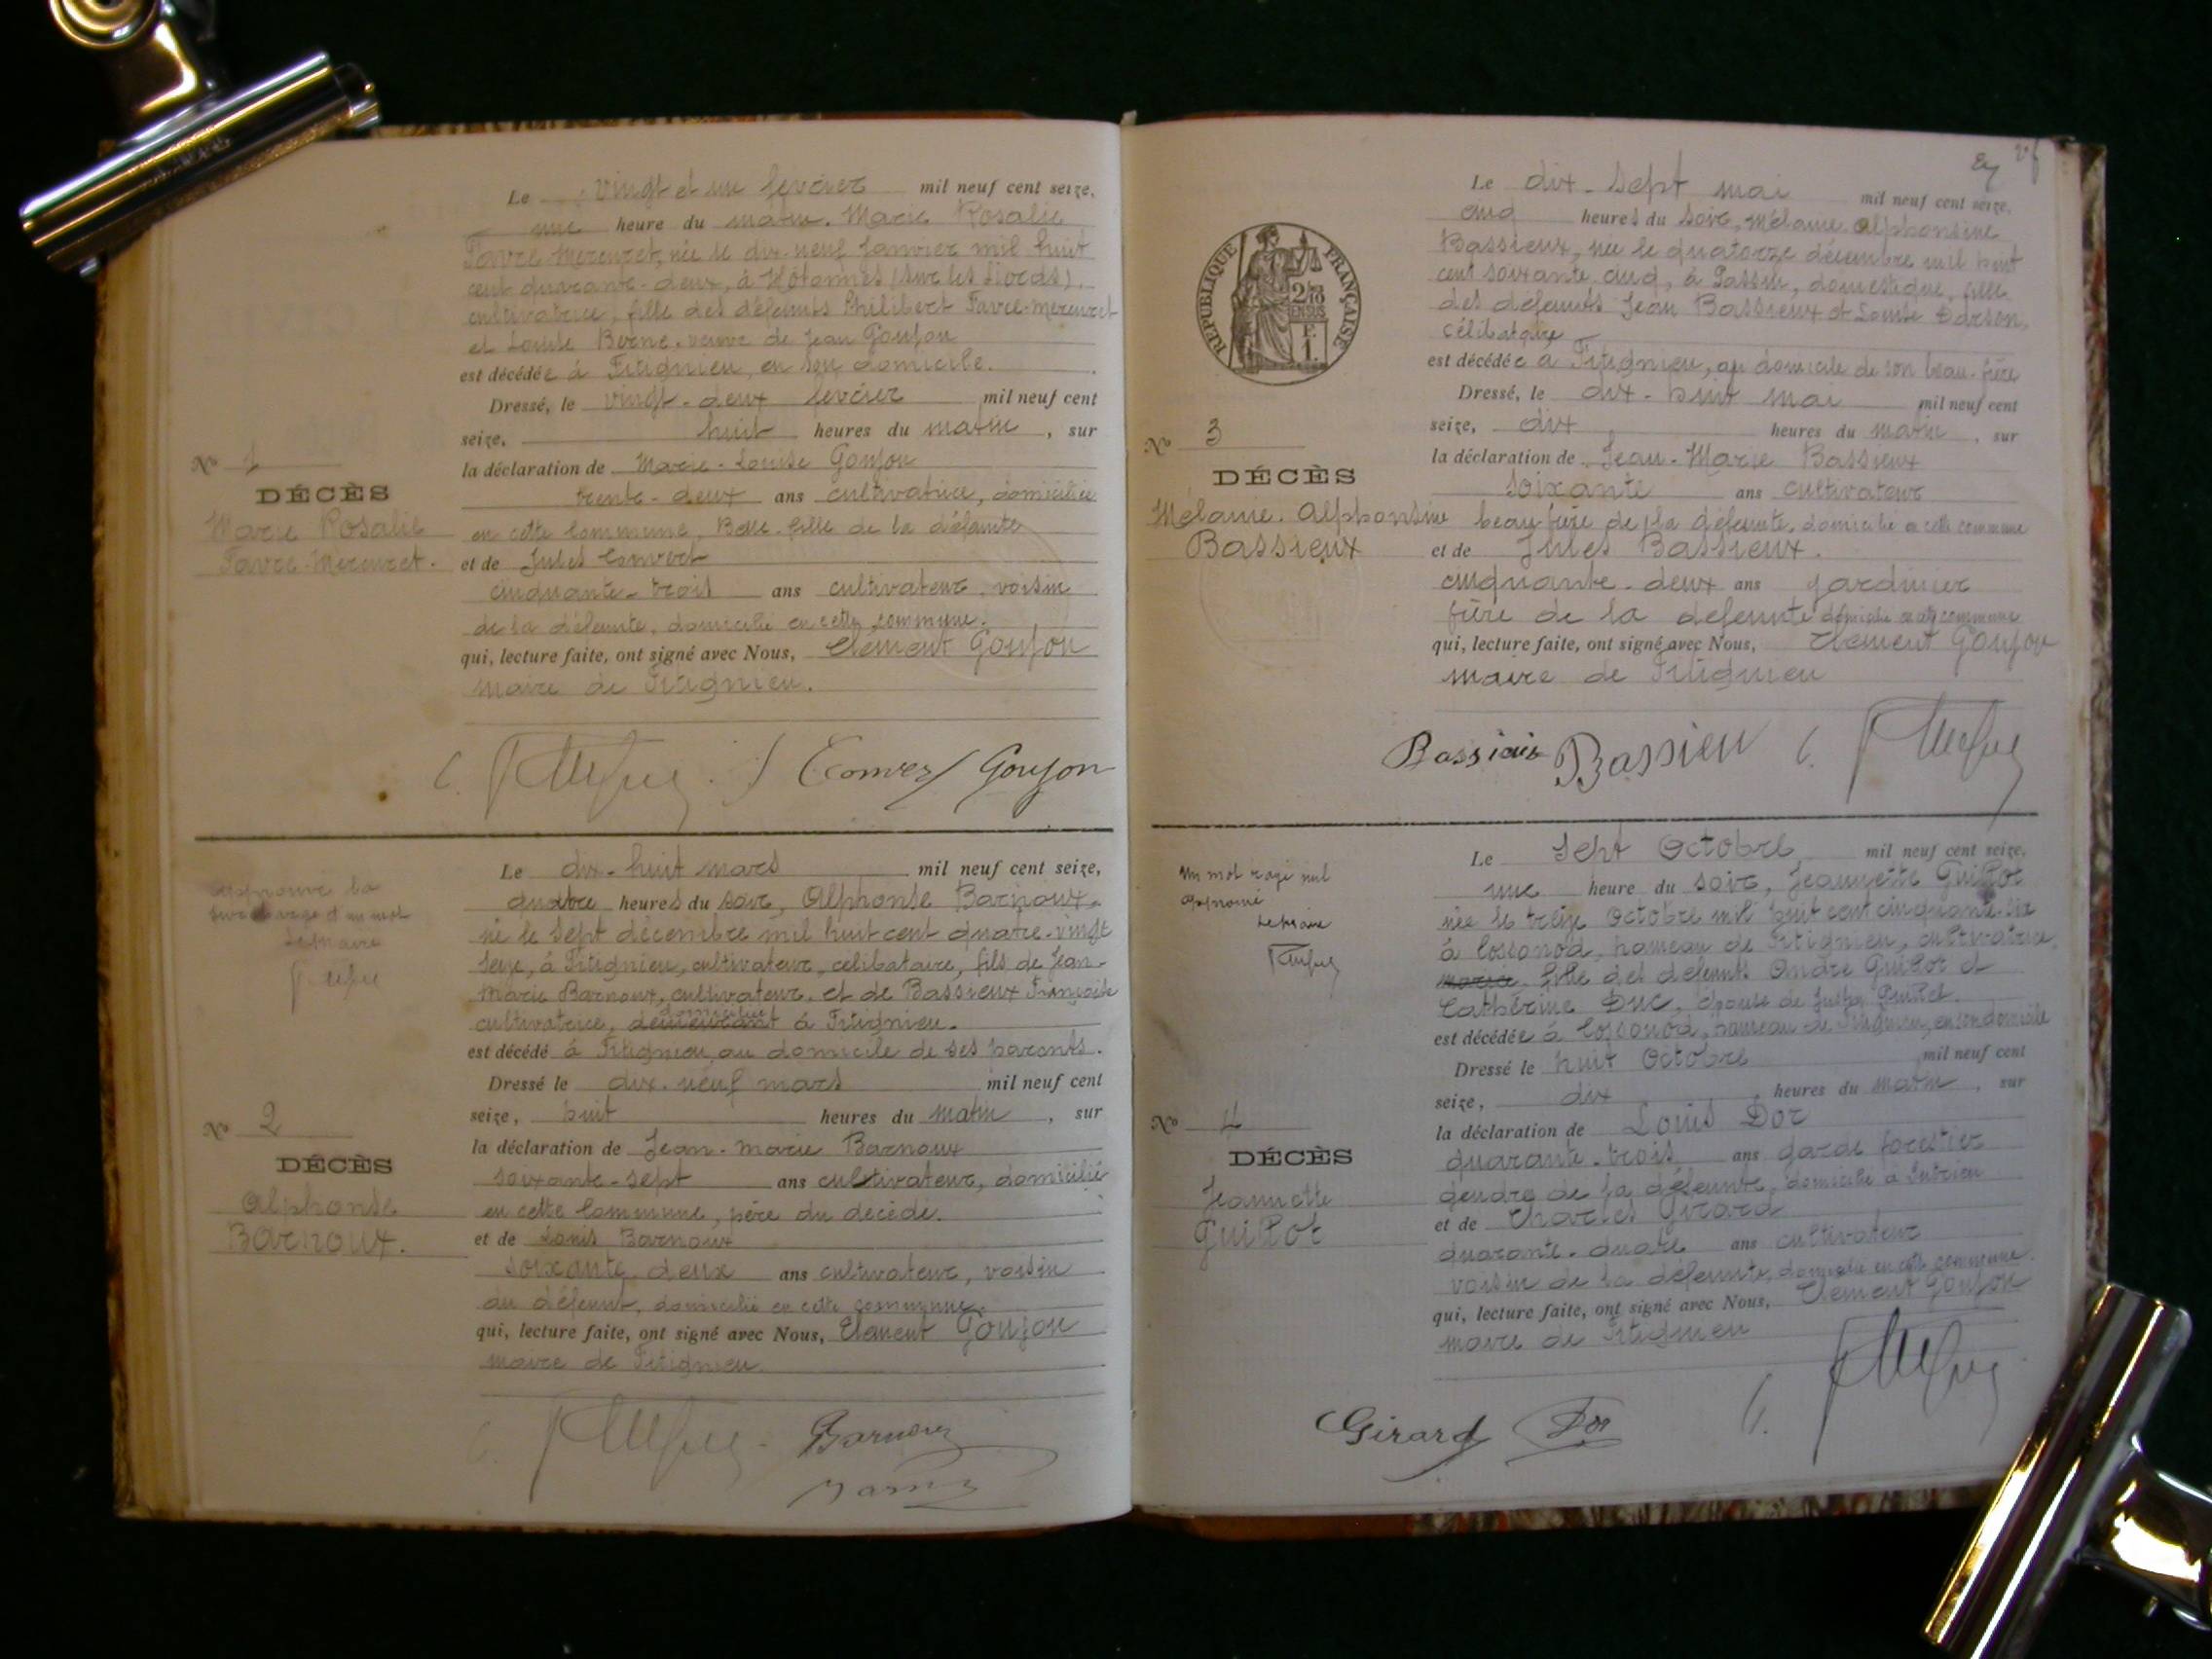 Le vingt et un fevrier mil neuf cent seize,
une heure du matin. Marie Rosalie
Favre-Mercuret, née le dix-neuf janvier mil huit
cent quarante-deux, à Hotonnes (sur les Liords).
cultivatrice, fille des défunts Philibert Favre-Mercuret
et Louise Berne. veuve de Jean Goujon
est décédée à Fitignieu, en son domicile.
Dressé, le vingt-deux fevrier mil neuf cent
seize, huit heures du matin, sur
la déclaration de Marie-Louise Goujon
trente-deux ans cultivatrice, domiciliée
en cette commune, Belle-fille de la défunte
et de Jules Convert
cinquante-trois ans cultivateur, voisin
de la défunte, domicilié en cette commune.
qui, lecture faite, ont signé avec Nous, Clément Goujon
maire de Fitignieu.
No 1
DÉCÈS
Marie Rosalie
Favre-Mercuret.
C. J Convert Goujon
Le dix-huit mars mil neuf cent seize,
quatre heures du soir, Alphonse Barnoux,
né le sept décembre mil huit cent quatre-vingt
seize, à Fitignieu, cultivateur, célibataire, fils de Jean-
Marie Barnoux, cultivateur, et de Bassieux Françoise
domiciliés
cultivatrice, demeurant à Fitignieu.
est décédé à Fitignieu, au domicile de ses parents.
Dressé le dix-neuf mars mil neuf cent
seize, huit heures du matin, sur
la déclaration de Jean-Marie Barnoux
soixante-sept ans cultivateur, domicilié
en cette commune, père du décédé.
et de Louis Barnoux
soixante deux ans cultivateur, voisin
du défunt, domicilié en cette commune.
qui, lecture faite, ont signé avec Nous, Clément Goujon
maire de Fitignieu.
approuvé la
surcharge d'un mot
Le maire
No 2
DÉCÈS
Alphonse
Barnoux.
C. Barnoux
Le dix-sept mai mil neuf cent seize,
cinq heures du soir, Mélanie Alphonsine
Bassieux, née le quatorze décembre mil huit
cent soixante cinq, à Passin, domestique, fille
des défunts Jean Bassieux et Louise Darson,
célibataire
est décédée à Fitignieu, au domicile de son beau-frère
Dressé, le dix-huit mai mil neuf cent
seize, dix heures du matin, sur
la déclaration de Jean-Marie Bassieux
soixante ans cultivateur
beau frère de la défunte, domicilié en cette commune
et de Jules Bassieux.
cinquante-deux ans jardinier
frère de la défunte domicilié en cette commune
qui, lecture faite, ont signé avec Nous, Clement Goujon
maire de Fitignieu
RÉPUBLIQUE FRANÇAISE
2/10 EN SUS
F. 1.
No 3
DÉCÈS
Mélanie. Alphonsine
Bassieux
Bassieu C.
Le sept Octobre mil neuf cent seize,
une heure du soir, Jeannette Guillot
née le treize Octobre mil huit cent cinquante-six
à Cossonod, hameau de Fitignieu, cultivatrice,
fille des défunts André Guillot et
Cathérine Duc, épouse de Guillot.
est décédée à Cossonod, hameau de Fitignieu, en son domicile
Dressé le huit Octobre mil neuf cent
seize, dix heures du matin, sur
la déclaration de Louis Dor
quarante-trois ans garde forestier
gendre de la défunte, domicilié à Sutrieu
et de Charles Girard
quarante-quatre ans cultivateur
voisin de la défunte, domicilié en cette commune.
qui, lecture faite, ont signé avec Nous, Clement Goujon
maire de Fitignieu
Un mot rayé nul
approuvé
Le maire
No 4
DÉCÈS
Jeannette
Guillot
Girard Dor C.